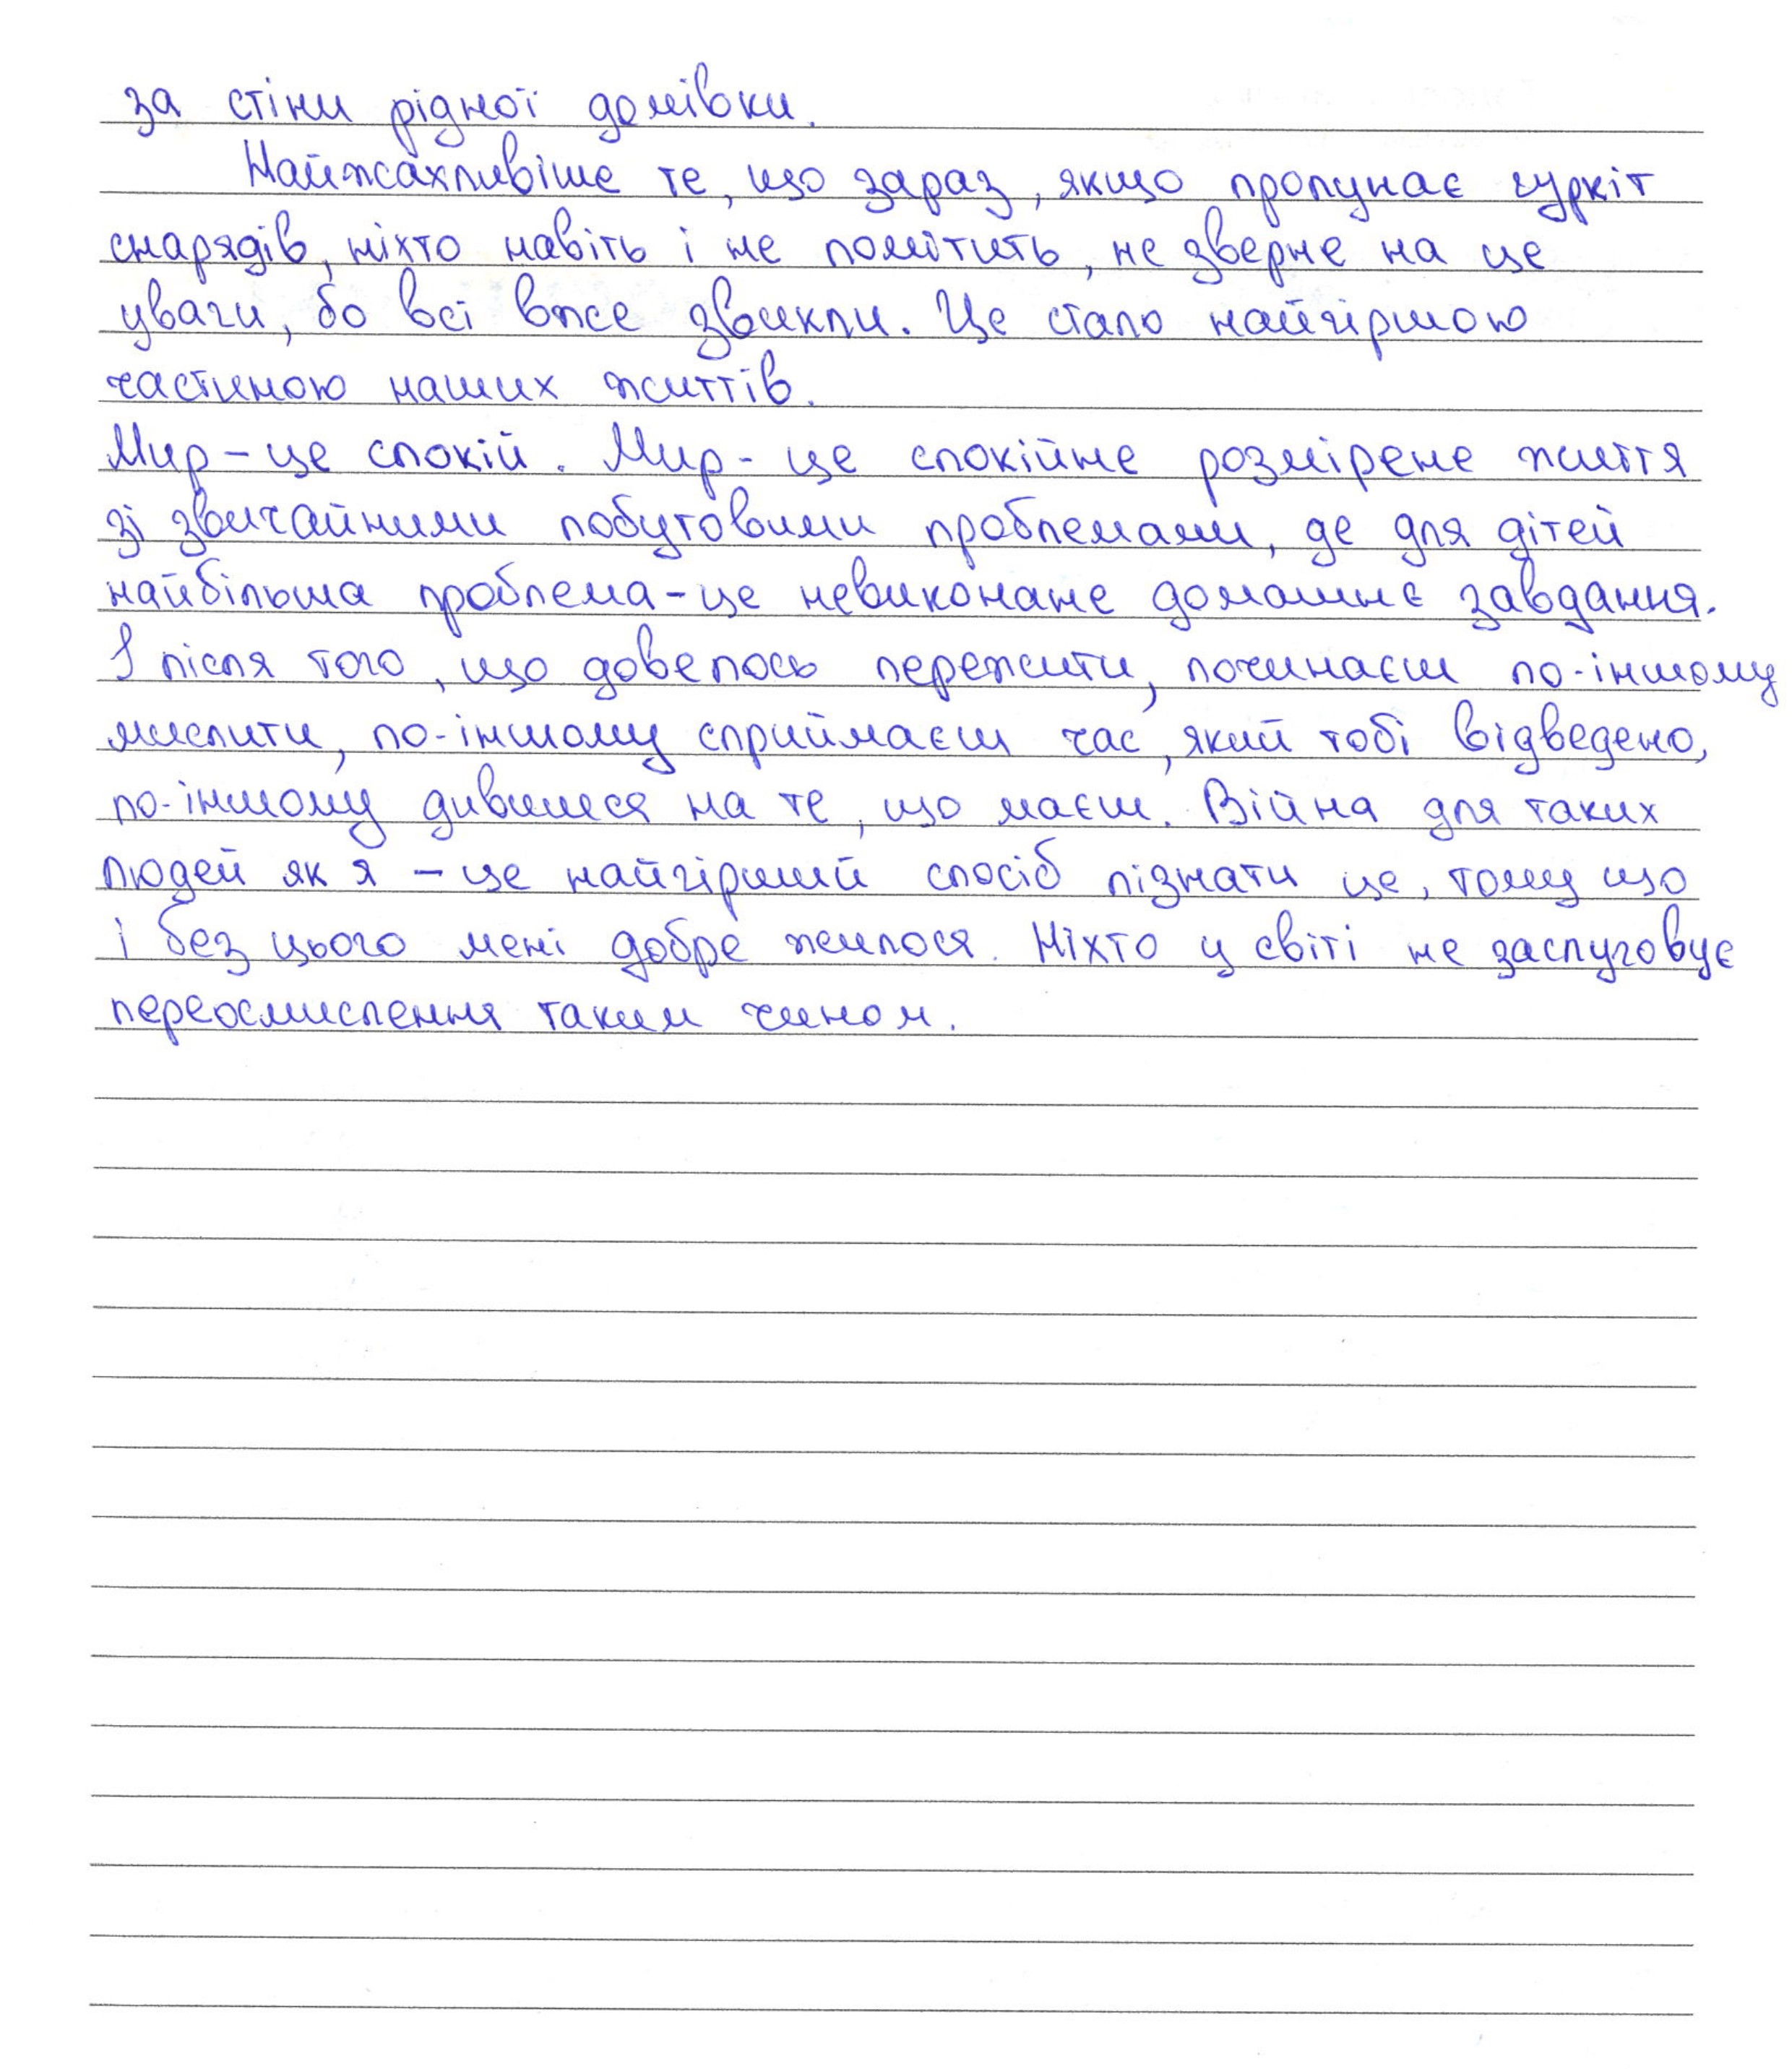 за стіни рідної домівки.
Найжахливіше те, що зараз, якщо пролунає гуркіт
снарядів, ніхто навіть і не помітить, не зверне на це
уваги, бо всі вже звикли. Це стало найгіршою
частиною наших життів.
Мир - це спокій. Мир - це спокійне розмірене життя
зі звичайними побутовими проблемами, де для дітей
найбільша проблема - це невиконане домашнє завдання.
І після того, що довелось пережити, починаєш по-іншому
мислити, по-іншому сприймаєш час, який тобі відведено,
по-іншому дивишся на те, що маєш. Війна для таких
людей як я - це найгірший спосіб пізнати це, тому що
і без цього мені добре жилося. Ніхто у світі не заслуговує
переосмислення таким чином.